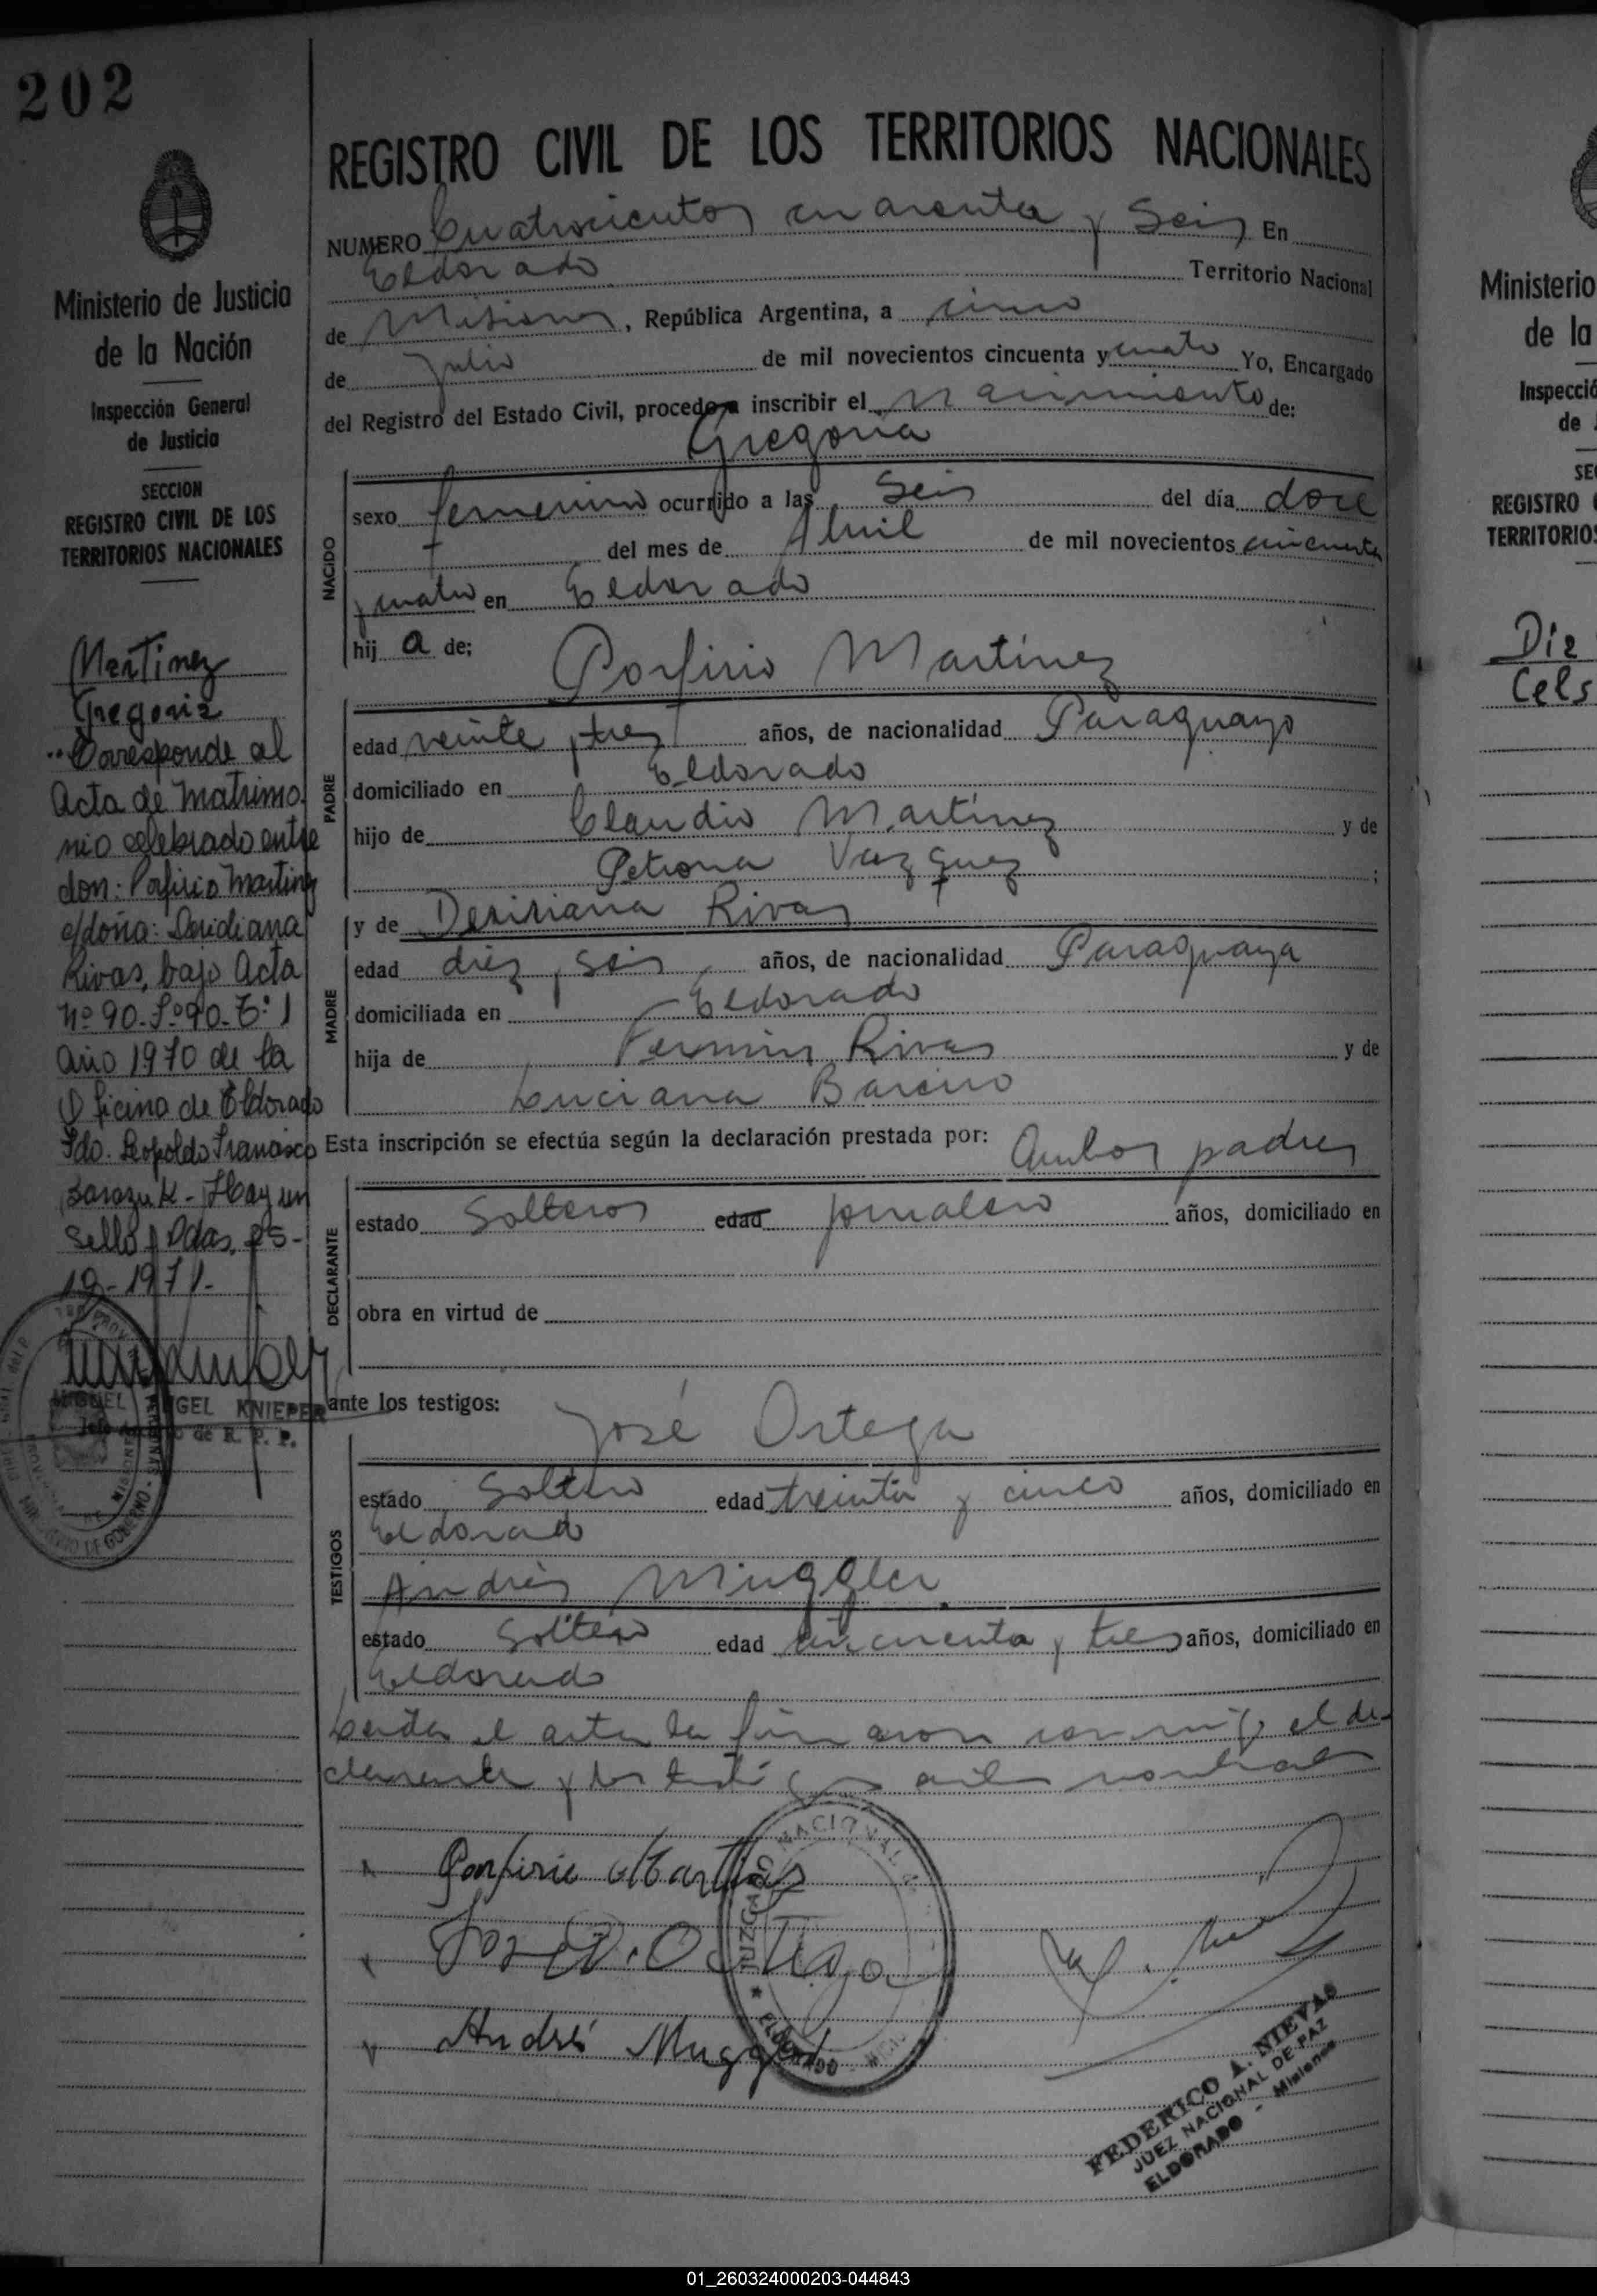 202
REGISTRO CIVIL DE LOS TERRITORIOS NACIONALES
NUMERO Cuatrocientos cuarenta y Seis En
Eldorado Territorio Nacional
de Misiones, República Argentina, a cinco
de Julio de mil novecientos cincuenta y cuatro Yo, Encargado
del Registro del Estado Civil, procedo a inscribir el Nacimiento de:
Gregoria
NACIDO
sexo femenino ocurrido a las Seis del día doce
del mes de Abril de mil novecientos cincuenta
y cuatro en Eldorado
hij a de;
Porfirio Martínez
PADRE
edad veinte y tres años, de nacionalidad Paraguayo
domiciliado en Eldorado
hijo de Claudio Martínez y de
Petrona Vazquez;
y de Desiriana Rivas
MADRE
edad diez y seis años, de nacionalidad Paraguaya
domiciliada en Eldorado
hija de Fermin Rivas y de
Luciana Bareiro
Esta inscripción se efectúa según la declaración prestada por: Ambos padres
DECLARANTE
estado Solteros edad jornalero años, domiciliado en
obra en virtud de
ante los testigos:
José Ortega
TESTIGOS
estado Soltero edad treinta y cinco años, domiciliado en
Eldorado
Andrés Muggler
estado Soltero edad cincuenta y tres años, domiciliado en
Eldorado
Leida el acta la firmaron conmigo el de-
clarante y los testigos
Porfirio Martinez
José D. Ortega
Andrés Muggler
JUZGADO NACIONAL
ELDORADO
FEDERICO A. NIEVAS
JUEZ NACIONAL DE PAZ
ELDORADO - Misiones
Ministerio de Justicia
de la Nación
Inspección General
de Justicia
SECCION
REGISTRO CIVIL DE LOS
TERRITORIOS NACIONALES
Martinez
Gregoria
Coresponde al
Acta de Matrimo
nio celebrado entre
don: Porfirio Martinez
c/doña: Desidiana
Rivas, bajo Acta
Nº 90. Fº 90. Tº: 1
año 1970 de la
Oficina de Eldorado
Fdo. Leopoldo Francisco
Hay un
sello Pdas, 25-
10-1971-
MIGUEL ANGEL KNIEPER
de R. P. P.
MISIONES
Ministerio
de la
Inspecció
de
SE
REGISTRO
TERRITORIOS
Diz
Cels
01_260324000203-044843